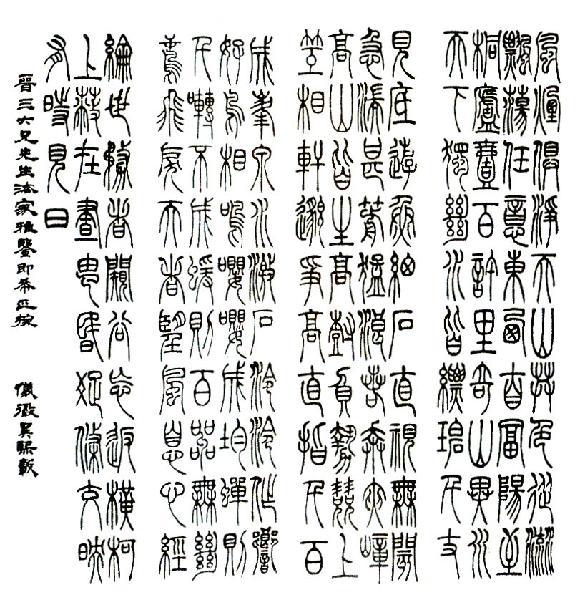 風煙俱淨天山共色從流
飄蕩任意東西自富陽至
桐廬壹百許里奇山異水
天下獨絕水皆縹碧千丈
見底遊魚細石直視無閡
急湍甚箭猛浪若奔夾嶂
高山皆生高樹負勢競上
互相軒邈爭高直指千百
成峯泉水激石泠泠作響
好鳥相鳴嚶嚶成均蟬則
千囀不窮猨則百叫無絕
鳶飛戾天者望風息心經
綸世務者闚谷忘返橫柯
上蔽在晝猶昏疏條交映
有時見日
晉三六兄先生法家雅鑒即希正捥
儀徵吳熙載